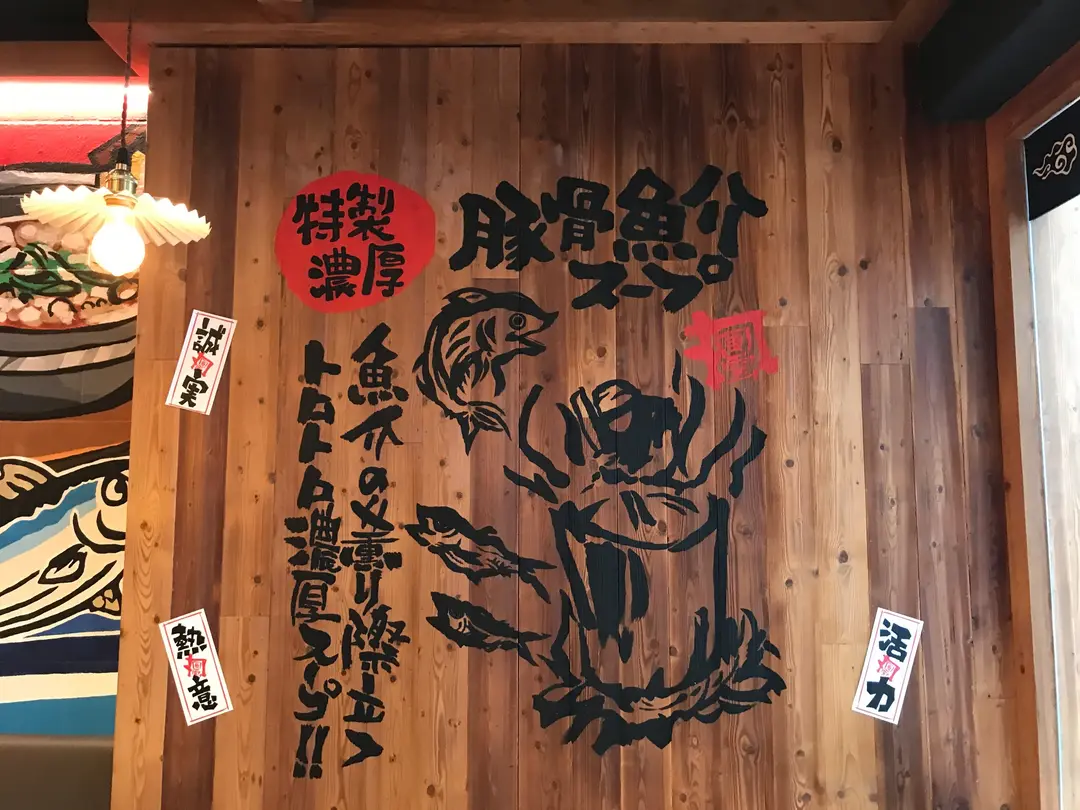 豚骨魚介
スープ
特製
濃厚
魚介の薫り際立つ
トロトロ濃厚スープ!!
誠実
熱意
活力